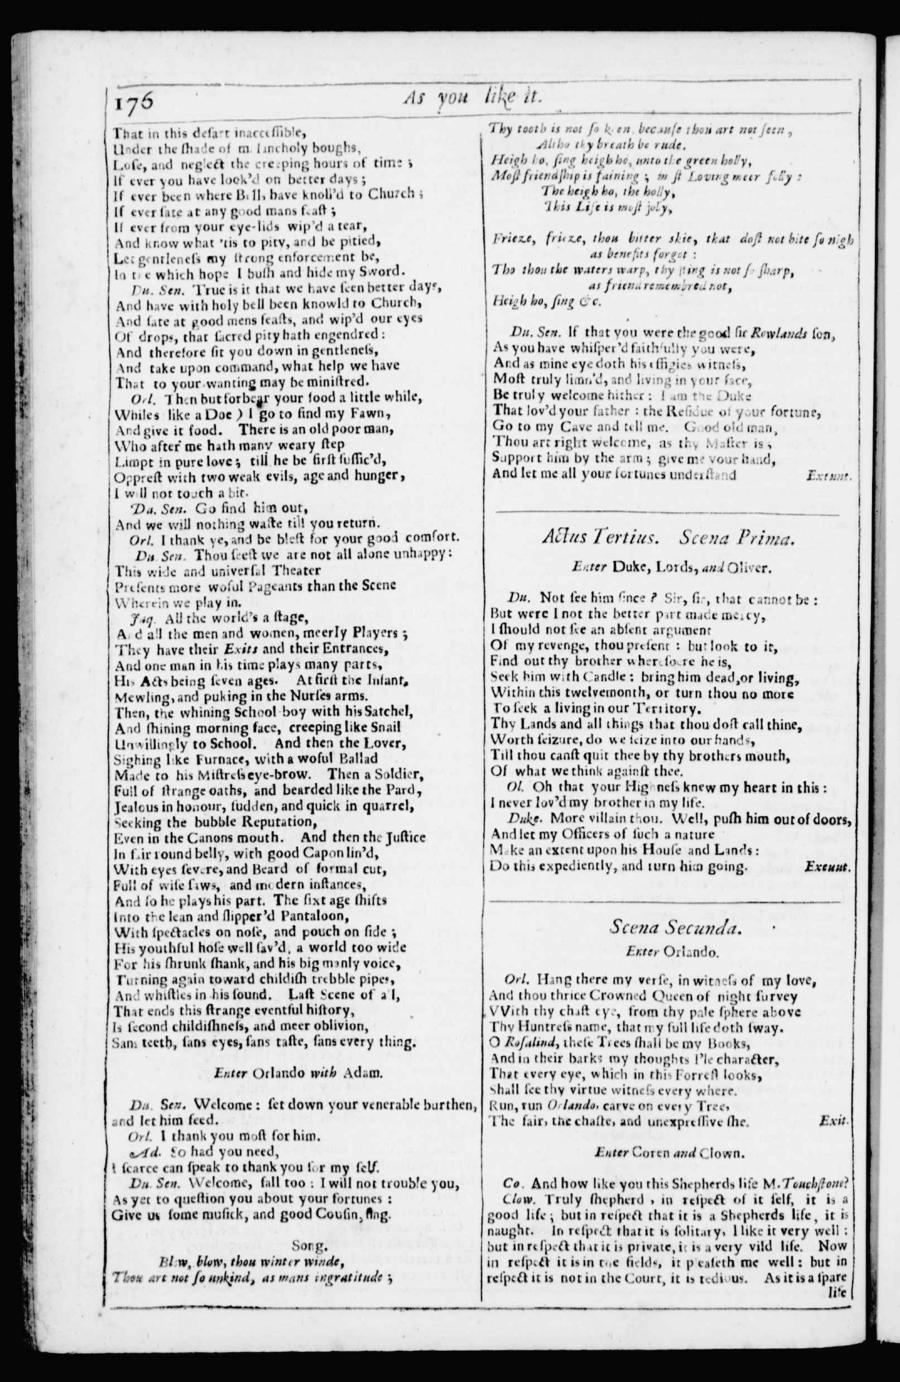 176
As you like it.
That in this desart inaccessible,
Under the shade of melancholy boughs,
Lose, and neglect the creeping hours of time ;
If ever you have look'd on better days ;
If ever been where Bells have knoll'd to Church ;
If ever sate at any good mans feast ;
If ever from your eye-lids wip'd a tear,
And know what 'tis to pity, and be pitied,
Let gentleness my strong enforcement be,
In the which hope I bush and hide my Sword.
Du. Sen. True is it that we have seen better days,
And have with holy bell been knowld to Church,
And sate at good mens feasts, and wip'd our eyes
Of drops, that sacred pity hath engendred :
And therefore sit you down in gentleness,
And take upon command, what help we have
That to your wanting may be ministred.
Orl. Then but forbear your food a little while,
Whiles like a Doe ) I go to find my Fawn,
And give it food. There is an old poor man,
Who after me hath many weary step
Limpt in pure love ; till he be first suffic'd,
Opprest with two weak evils, age and hunger,
I will not touch a bit.
Du. Sen. Go find him out,
And we will nothing waste till you return.
Orl. I thank ye, and be blest for your good comfort.
Du Sen. Thou seest we are not all alone unhappy :
This wide and universal Theater
Presents more woful Pageants than the Scene
Wherein we play in.
Jaq. All the world's a stage,
And all the men and women, meerly Players ;
They have their Exits and their Entrances,
And one man in his time plays many parts,
His Acts being seven ages. At first the Infant,
Mewling, and puking in the Nurses arms.
Then, the whining School-boy with his Satchel,
And shining morning face, creeping like Snail
Unwillingly to School. And then the Lover,
Sighing like Furnace, with a woful Ballad
Made to his Mistress eye-brow. Then a Soldier,
Full of strange oaths, and bearded like the Pard,
Jealous in honour, sudden, and quick in quarrel,
Seeking the bubble Reputation,
Even in the Canons mouth. And then the Justice
In fair round belly, with good Capon lin'd,
With eyes severe, and Beard of formal cut,
Full of wise saws, and modern instances,
And so he plays his part. The sixt age shifts
Into the lean and slipper'd Pantaloon,
With spectacles on nose, and pouch on side ;
His youthful hose well sav'd, a world too wide
For his shrunk shank, and his big manly voice,
Turning again toward childish trebble pipes,
And whistles in his sound. Last Scene of all,
That ends this strange eventful history,
Is second childishness, and meer oblivion,
Sans teeth, sans eyes, sans taste, sans every thing.
Enter Orlando with Adam.
Du. Sen. Welcome : set down your venerable burthen,
and let him feed.
Orl. I thank you most for him.
Ad. So had you need,
I scarce can speak to thank you for my self.
Du. Sen. Welcome, fall too : I will not trouble you,
As yet to question you about your fortunes :
Give us some musick, and good Cousin, sing.
Song.
Blow, blow, thou winter winde,
Thou art not so unkind, as mans ingratitude ;
Thy tooth is not so keen, because thou art not seen,
Altho thy breath be rude.
Heigh ho, sing heigh ho, unto the green holly,
Most friendship is faining ; most Loving meer folly :
The heigh ho, the holly,
This Life is most joly,
Frieze, frieze, thou bitter skie, that dost not bite so nigh
as benefits forgot :
Tho thou the waters warp, thy sting is not so sharp,
as friend remembred not,
Heigh ho, sing &c.
Du. Sen. If that you were the good sir Rowlands son,
As you have whisper'd faithfully you were,
And as mine eye doth his effigies witness,
Most truly limn'd, and living in your face,
Be truly welcome hither : I am the Duke
That lov'd your father : the Residue of your fortune,
Go to my Cave and tell me. Good old man,
Thou art right welcome, as thy Master is ;
Support him by the arm ; give me your hand,
And let me all your fortunes understand Exeunt.
Actus Tertius. Scena Prima.
Enter Duke, Lords, and Oliver.
Du. Not see him since ? Sir, sir, that cannot be :
But were I not the better part made mercy,
I should not see an absent argument
Of my revenge, thou present : but look to it,
Find out thy brother wheresoere he is,
Seek him with Candle : bring him dead, or living,
Within this twelvemonth, or turn thou no more
To seek a living in our Territory.
Thy Lands and all things that thou dost call thine,
Worth seizure, do we seize into our hands,
Till thou canst quit thee by thy brothers mouth,
Of what we think against thee.
Ol. Oh that your Highness knew my heart in this :
I never lov'd my brother in my life.
Duke. More villain thou. Well, push him out of doors,
And let my Officers of such a nature
Make an extent upon his House and Lands :
Do this expediently, and turn him going. Exeunt.
Scena Secunda.
Enter Orlando.
Orl. Hang there my verse, in witness of my love,
And thou thrice Crowned Queen of night survey
VVith thy chast eye, from thy pale sphere above
Thy Huntress name, that my full life doth sway.
O Rosalind, these Trees shall be my Books,
And in their barks my thoughts I'le character,
That every eye, which in this Forrest looks,
Shall see thy virtue witness every where.
Run, run Orlando, carve on every Tree,
The fair, the chaste, and unexpressive she. Exit.
Enter Coren and Clown.
Co. And how like you this Shepherds life M. Touchstone?
Clow. Truly shepherd, in respect of it self, it is a
good life ; but in respect that it is a Shepherds life, it is
naught. In respect that it is solitary, I like it very well :
but in respect that it is private, it is a very vild life. Now
in respect it is in the fields, it pleaseth me well : but in
respect it is not in the Court, it is tedious. As it is a spare
life